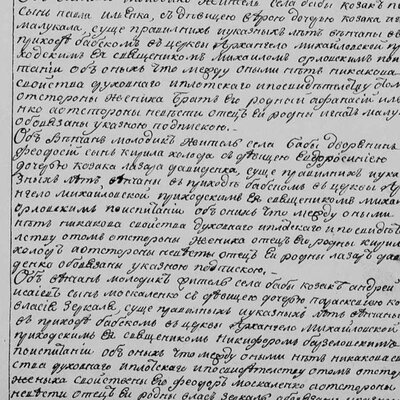 житель села бабы козакъ п
сынъ павла илѣнка, съ дѣвицею дочерю козака и
малукала, суще правилнихъ указныхъ лѣтъ вѣнчаны в
приходѣ бабскомъ въ церкви Архангело михайловской пр
ходскимъ ея священикомъ михаиломъ орловскимъ пои
танїи объ оныхъ что между оными нѣтъ никакова
свойства духовнаго и плотскаго
отстороны женика братъ его родний афанасий ил
нко астстороны невѣсти отецъ ея родни игнатъ малу
обвязаны указною подпискою. —
Объ вѣнчанъ молодикъ житель села бабы дворянинъ
феодосий сынъ кирила холода съ дѣвицею евдокиею
дочерю козака лазара давиденка, суще правилнихъ указ
знихъ лѣтъ, вѣнчаны въ приходѣ бабскомъ въ церкви Ар
нгело михайловской приходскимъ ея священикомъ михаи
орловскимъ поиспитанїи объ оныхъ что между оными
нѣтъ никакова свойства духовнаго и плотскаго и посвидѣт
лству отомъ отстороны женика отецъ его родни кирил
холодъ аотстороны невѣсты отецъ ея родни лазаръ дав
денко обвязаны указною подпискою. —
Объ вѣнчанъ молодикъ житель села бабы козакъ андрей
исаиевъ сынъ москаленко съ дѣвицею дочерю параскевиею ко
власия зеркаля, суще правилныхъ указныхъ лѣтъ вѣнчаны
въ приходѣ бабскомъ въ церкви Архангело михайловской
приходскимъ ея священикомъ никифоромъ
поиспитанїи объ оныхъ что между оными нѣтъ никакова сво
ства духовнаго и плотскаго ипосвидѣтелству отомъ отстор
женика свойственъ его феодоръ москаленко астстороны
невѣсти отецъ ея родны власъ зеркаль обвязаны указн